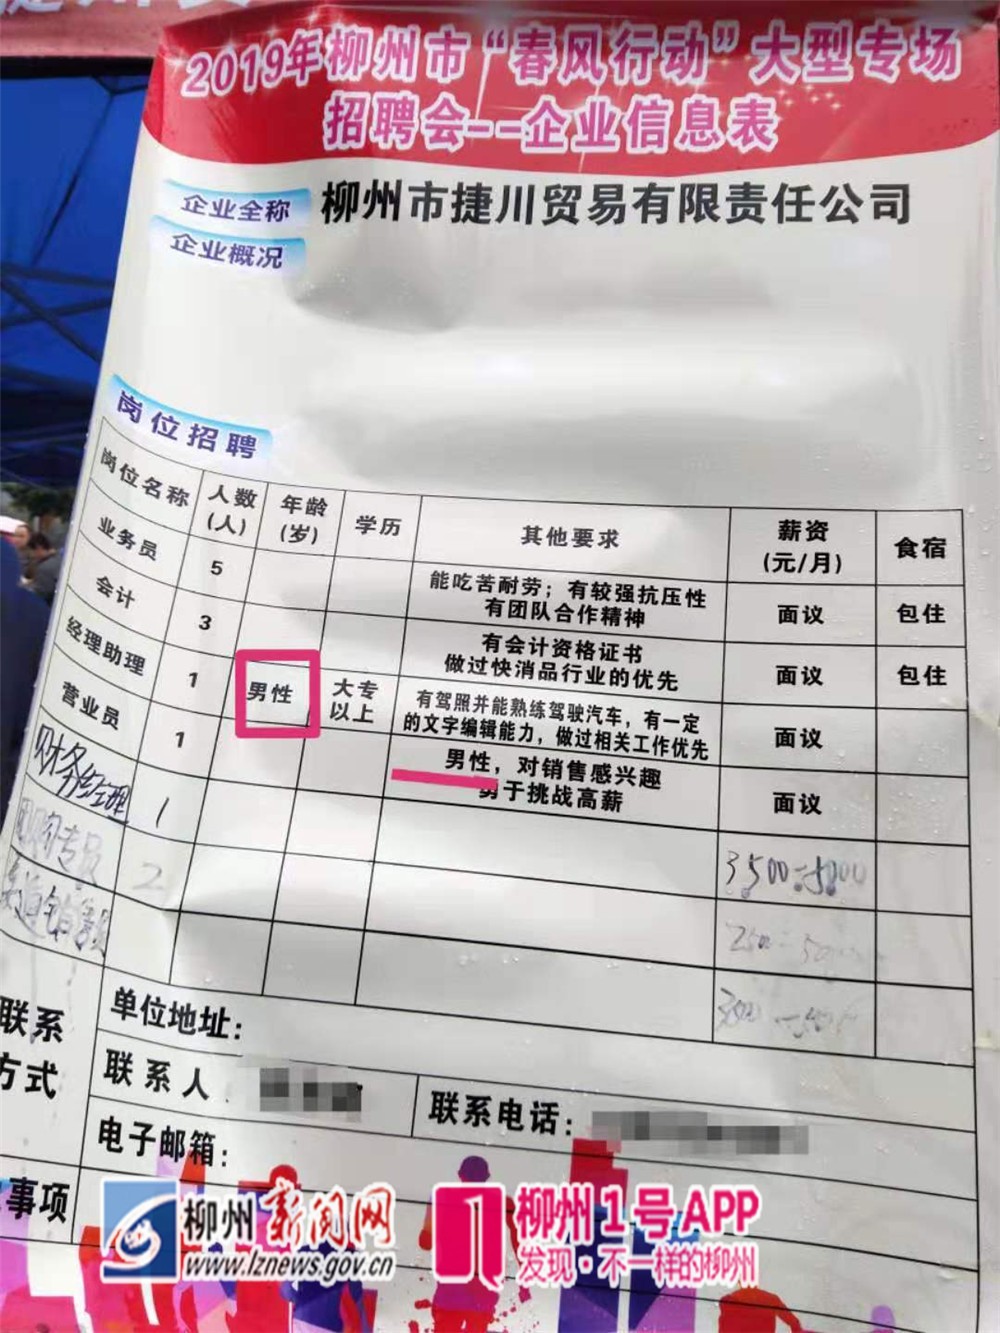 2019年柳州市“春风行动”大型专场
招聘会--企业信息表
企业全称 柳州市捷川贸易有限责任公司
企业概况
岗位招聘
岗位名称 人数(人) 年龄(岁) 学历 其他要求 薪资(元/月) 食宿
业务员 5 能吃苦耐劳；有较强抗压性 有团队合作精神 面议 包住
会计 3 有会计资格证书 做过快消品行业的优先 面议 包住
经理助理 1 男性 大专以上 有驾照并能熟练驾驶汽车，有一定的文字编辑能力，做过相关工作优先 面议
营业员 1 男性，对销售感兴趣 勇于挑战高薪 面议
财务经理 1 3500-5000
专员 2
渠道销售员
联系
方式
单位地址：
联系人
联系电话：
电子邮箱：
事项
柳州新闻网
www.lznews.gov.cn
柳州1号APP
发现·不一样的柳州